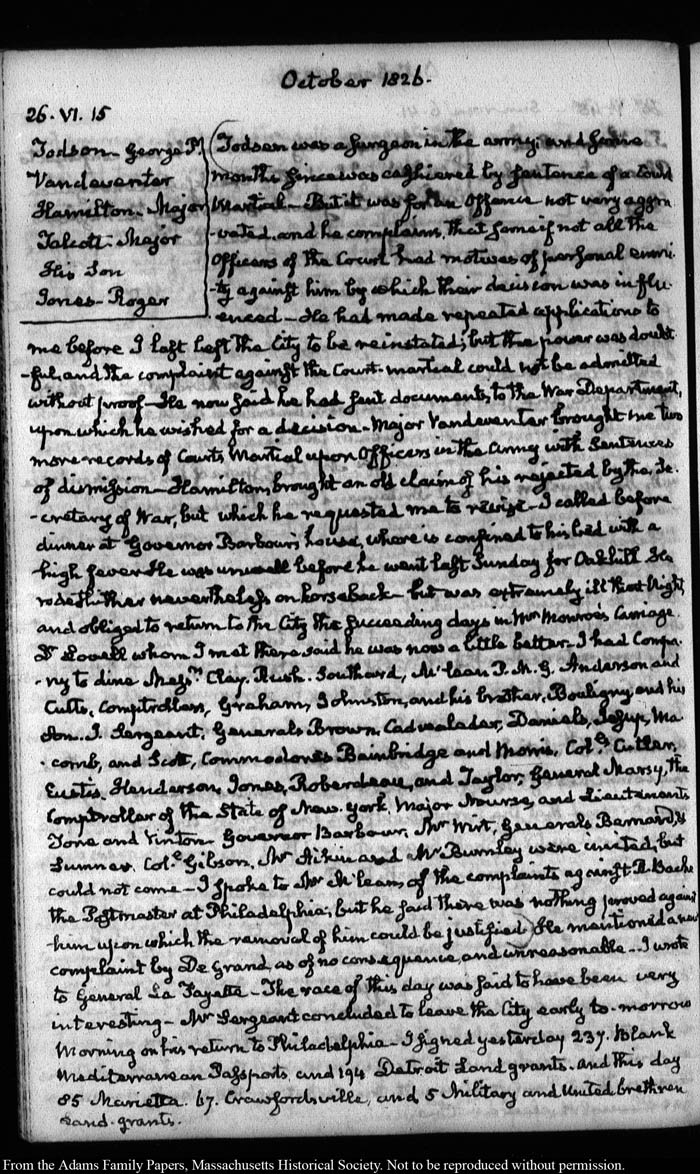 October 1826.
26. VI. 15
Todson - George P.
Vandeventer
Hamilton. Major
Talcott. Major
His Son
Jones - Roger
Todson was a Surgeon in the army; and some
months since was cashiered by sentence of a Court
Martial - But it was for an Offence not very aggra
-vated. and he complains, that some if not all the
Officers of the Court had motives of personal enmi
-ty against him by which their decision was influ-
enced - He had made repeated applications to
me before I last left the City to be reinstated; but the power was doubt
-ful, and the complaint against the Court-martial could not be admitted
without proof - He now said he had sent documents, to the War Department,
upon which he wished for a decision. Major Vandeventer brought me two
more records of Courts Martial upon Officers in the Army with Sentences
of dismission - Hamilton, brought an old claim of his rejected by the Se-
-cretary of War, but which he requested me to revise - I called before
dinner at Governor Barbour's house, where is confined to his bed with a
high fever He was unwell before he went last Sunday for Oakhill He
rode thither nevertheless on horseback - but was extremely ill that Night,
and obliged to return to the City the succeeding days in Mrs Monroe's Carriage.
Dr Lovell whom I met there said he was now a little better - I had Compa
-ny to dine Messrs Clay. Rush. Southard, McLean P.M.G. Anderson and
Cutts, Comptrollers, Graham, Johnston, and his brother. Bouligny and his
Son. J. Sergeant, Generals Brown, Cadwalader, Daniels, Jesup, Ma
-comb, and Scott, Commodores Bainbridge and Morris, Cols Cutler,
Eustis, Henderson, Jones, Roberdeau, and Taylor, General Marsy, the
Comptroller of the State of New-York. Major Nourse, and Lieutenants
Tone and Vinton - Governor Barbour, Mr Wirt, Generals Bernard, &
Sumner. Col. Gibson, Mr Aikin and Mr Burnley were invited, but
could not come - I spoke to Mr McLean, of the complaints against R Bache
the Postmaster at Philadelphia; but he said there was nothing proved against
him upon which the removal of him could be justified. He mentioned a new
complaint by De Grand, as of no consequence, and unreasonable -- I wrote
to General La Fayette - The race of this day was said to have been very
interesting - Mr Sergeant concluded to leave the City early to-morrow
Morning on his return to Philadelphia - I signed yesterday 237. blank
Mediterranean Passports and 194 Detroit Land grants. and this day
85 Marietta. 67. Crawfordsville, and 5 Military and United brethren
Land-grants.
From the Adams Family Papers, Massachusetts Historical Society. Not to be reproduced without permission.